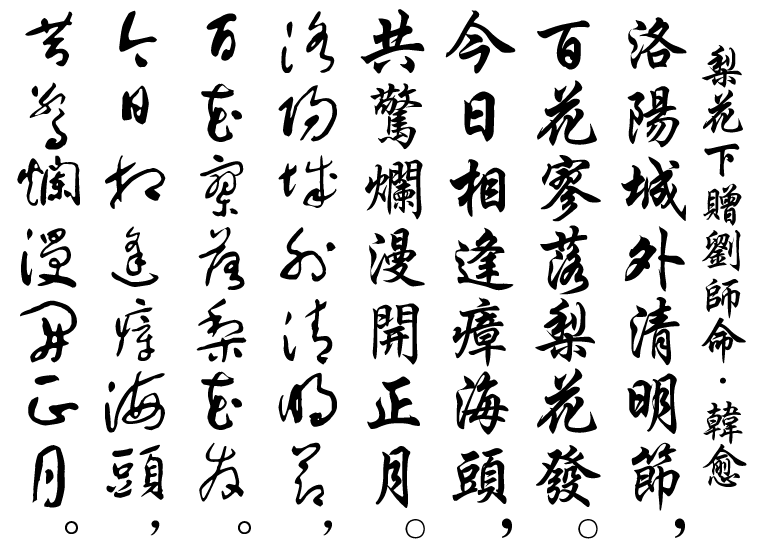 梨花下贈劉師命·韓愈
洛陽城外清明節，
百花寥落梨花發。
今日相逢瘴海頭，
共驚爛漫開正月。
洛陽城外清明節，
百花寥落梨花發。
今日相逢瘴海頭，
共驚爛漫開正月。